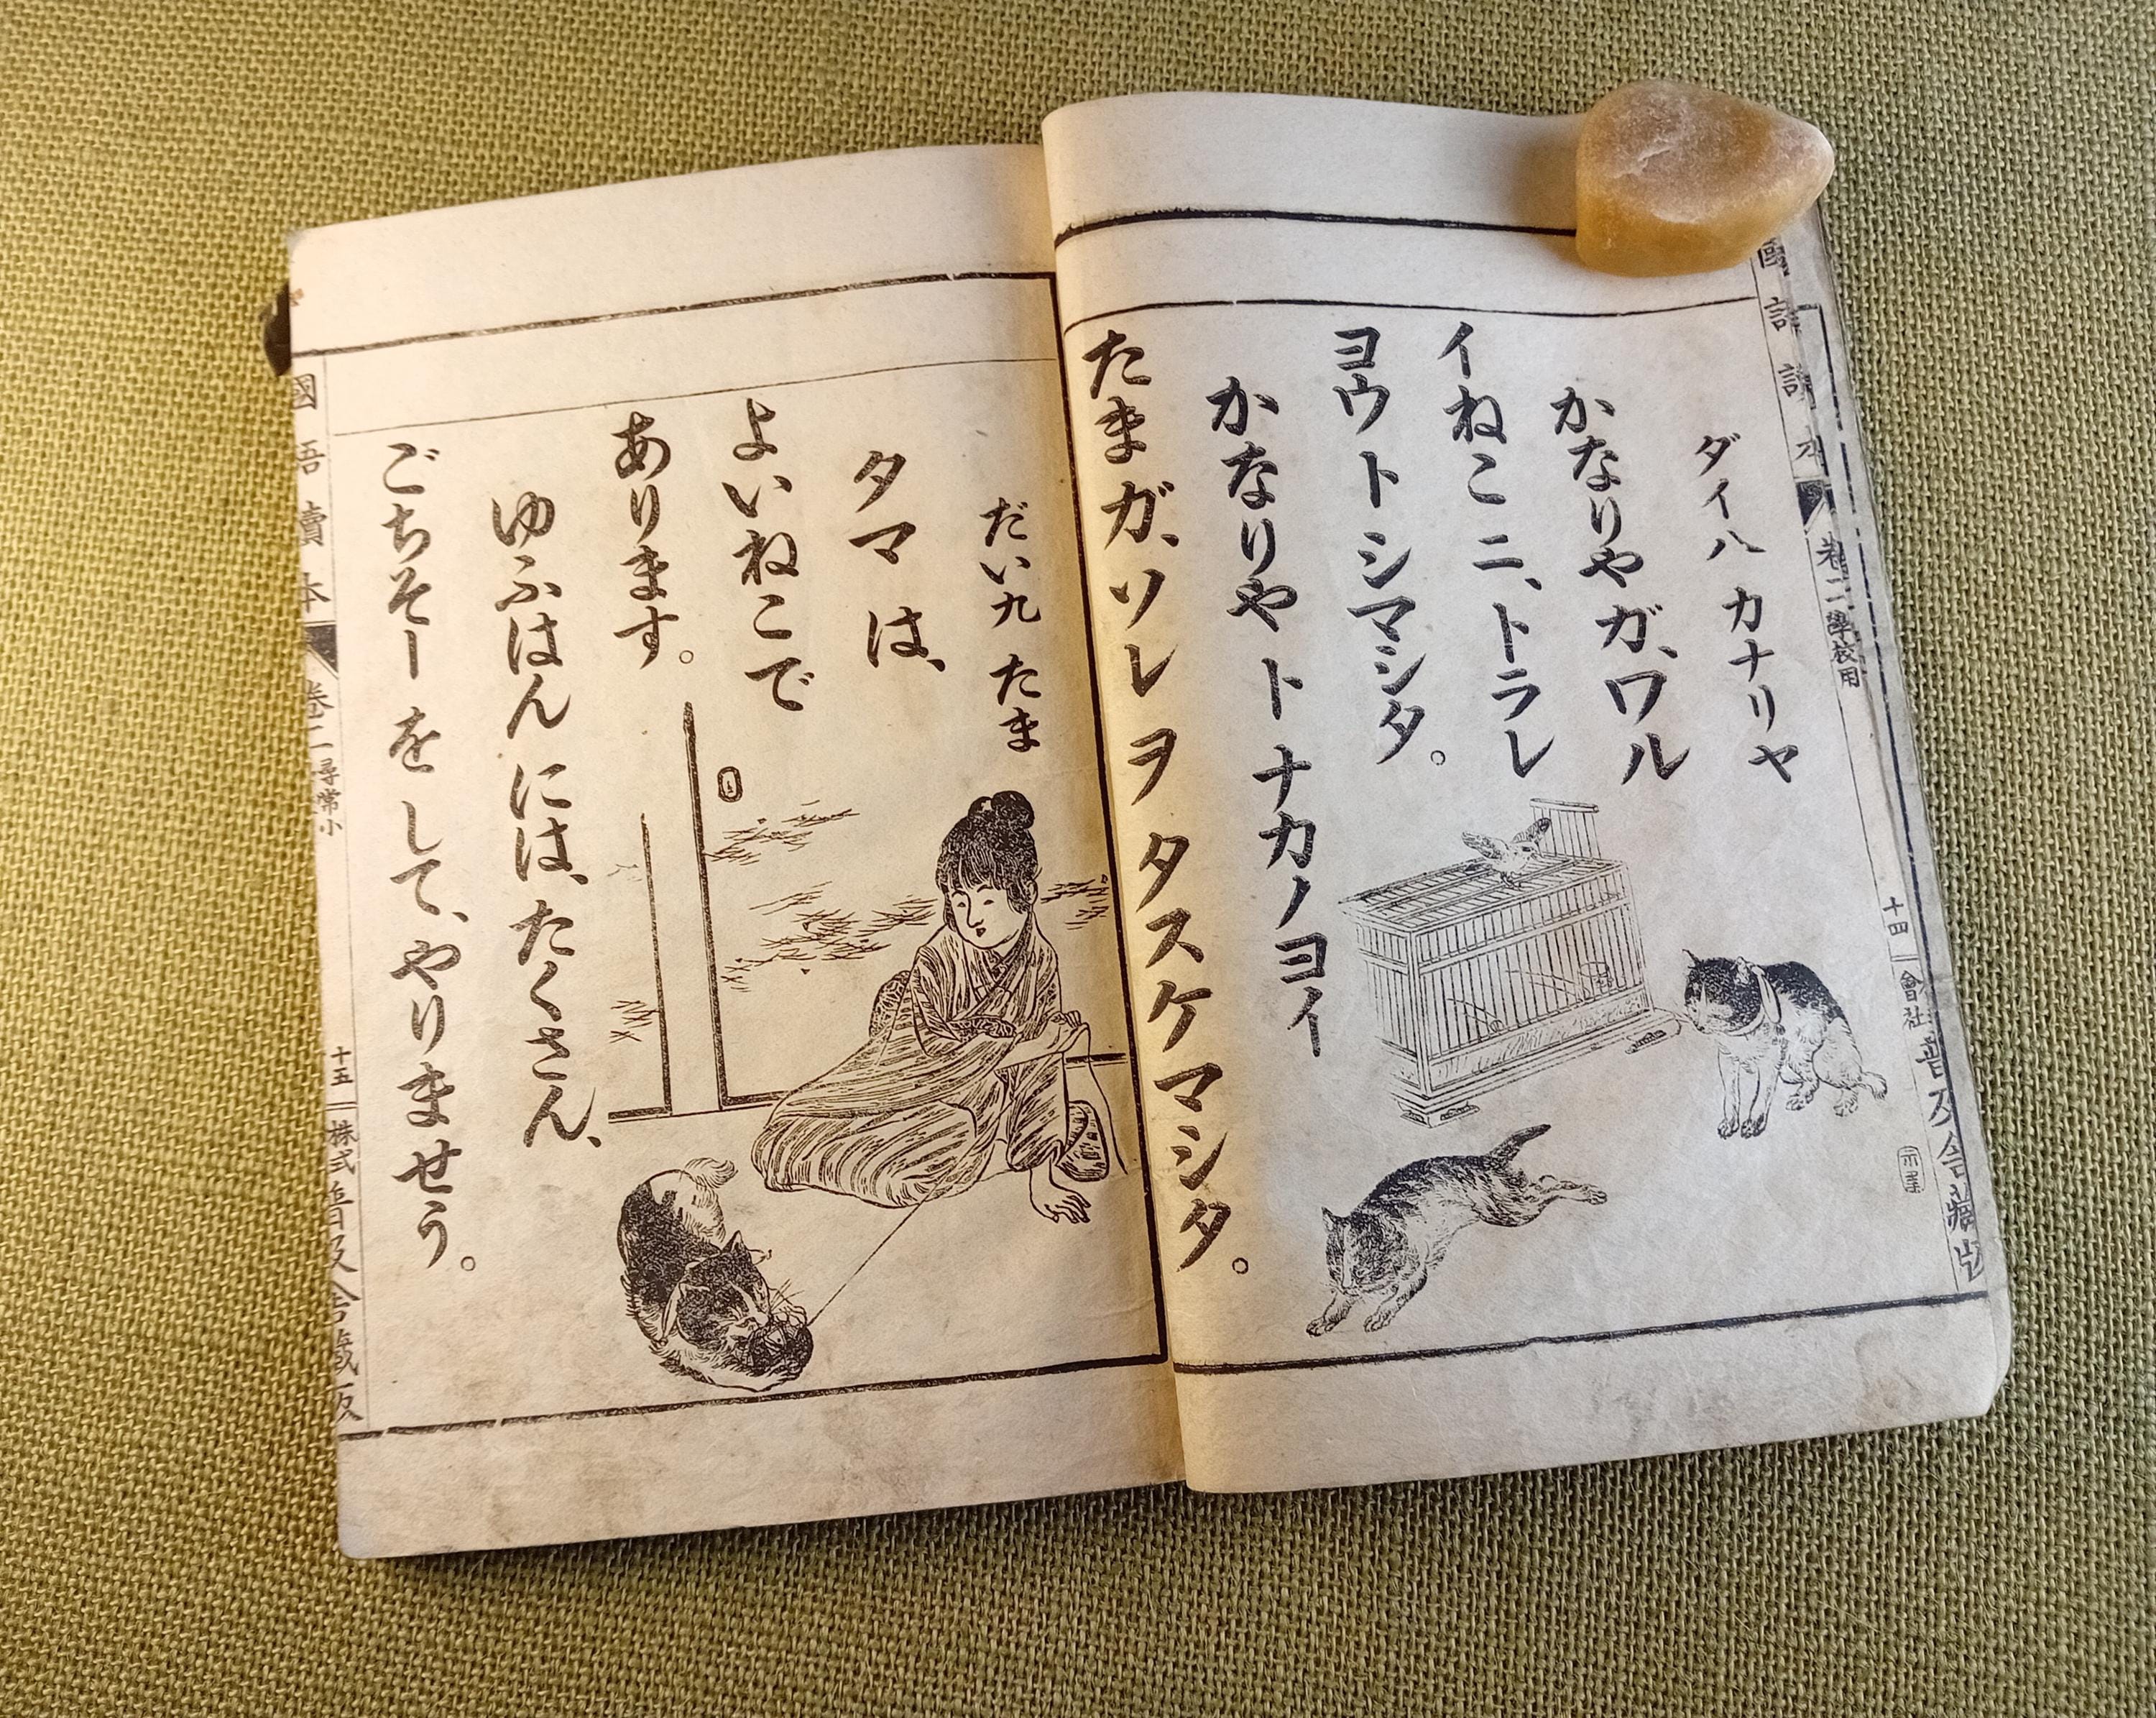 國語讀本 卷二 學校用
十四
會社 普及舍藏版
ダイ八 カナリヤ
かなりやガ、ワル
イねこニ、トラレ
ヨウトシマシタ。
かなりやトナカノヨイ
たまガ、ソレヲタスケマシタ。
だい九 たま
タマは、
よいねこで
あります。
ゆふはんには、たくさん、
ごちそーをして、やりませう。
國語讀本 卷二 尋常小
十五
株式 普及舍藏版